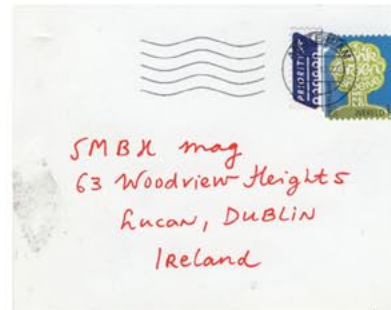 PRIORITY
WERELD
SMBH mag
63 Woodview Heights
Lucan, DUBLIN
IReland